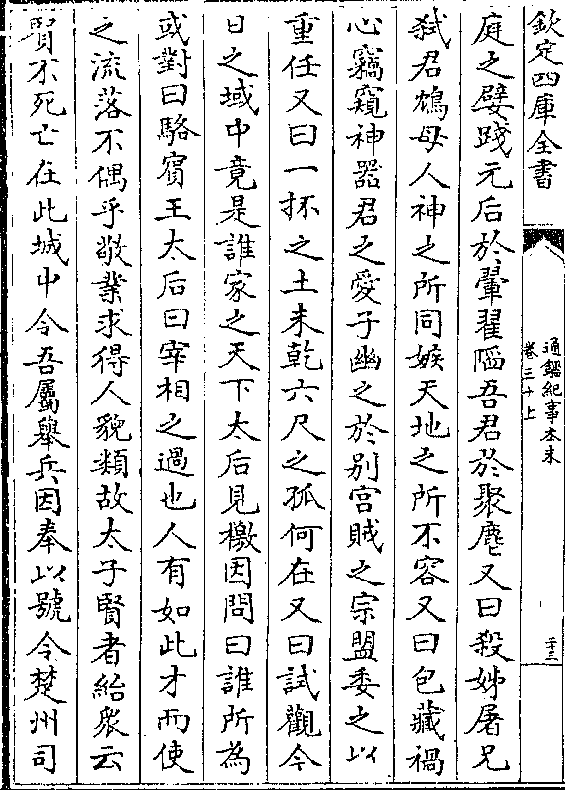 欽定四庫全書
通鑑紀事本末
卷三十上
二十三
庭之嬖踐元后於翬翟䧟吾君於聚麀又曰殺姊屠兄
弑君鴆母人神之所同嫉天地之所不容又曰包藏禍
心竊窺神器君之愛子幽之於别宫賊之宗盟委之以
重任又曰一抔之土未乾六尺之孤何在又曰試觀今
日之域中竟是誰家之天下太后見檄因問曰誰所為
或對曰駱賓王太后曰宰相之過也人有如此才而使
之流落不偶乎敬業求得人貌類故太子賢者紿衆云
賢不死亡在此城中令吾屬舉兵因奉以號令楚州司